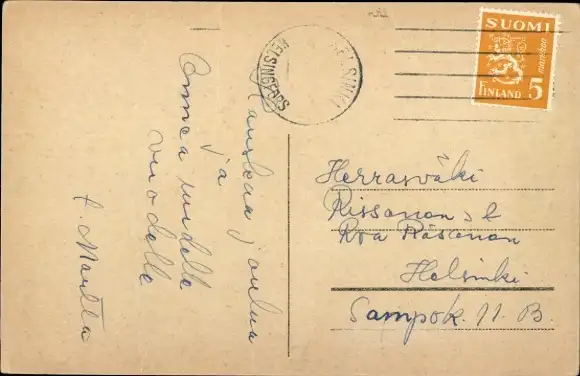 Hauskaa joulua
ja
Onnea uudelle
vuodelle
t. Martta
HELSINKI
HELSINGFORS
SUOMI
markkaa
FINLAND 5
Herrasväki
Rissanen s k
Roa Räsänen
Helsinki
Sampok. 11. B.